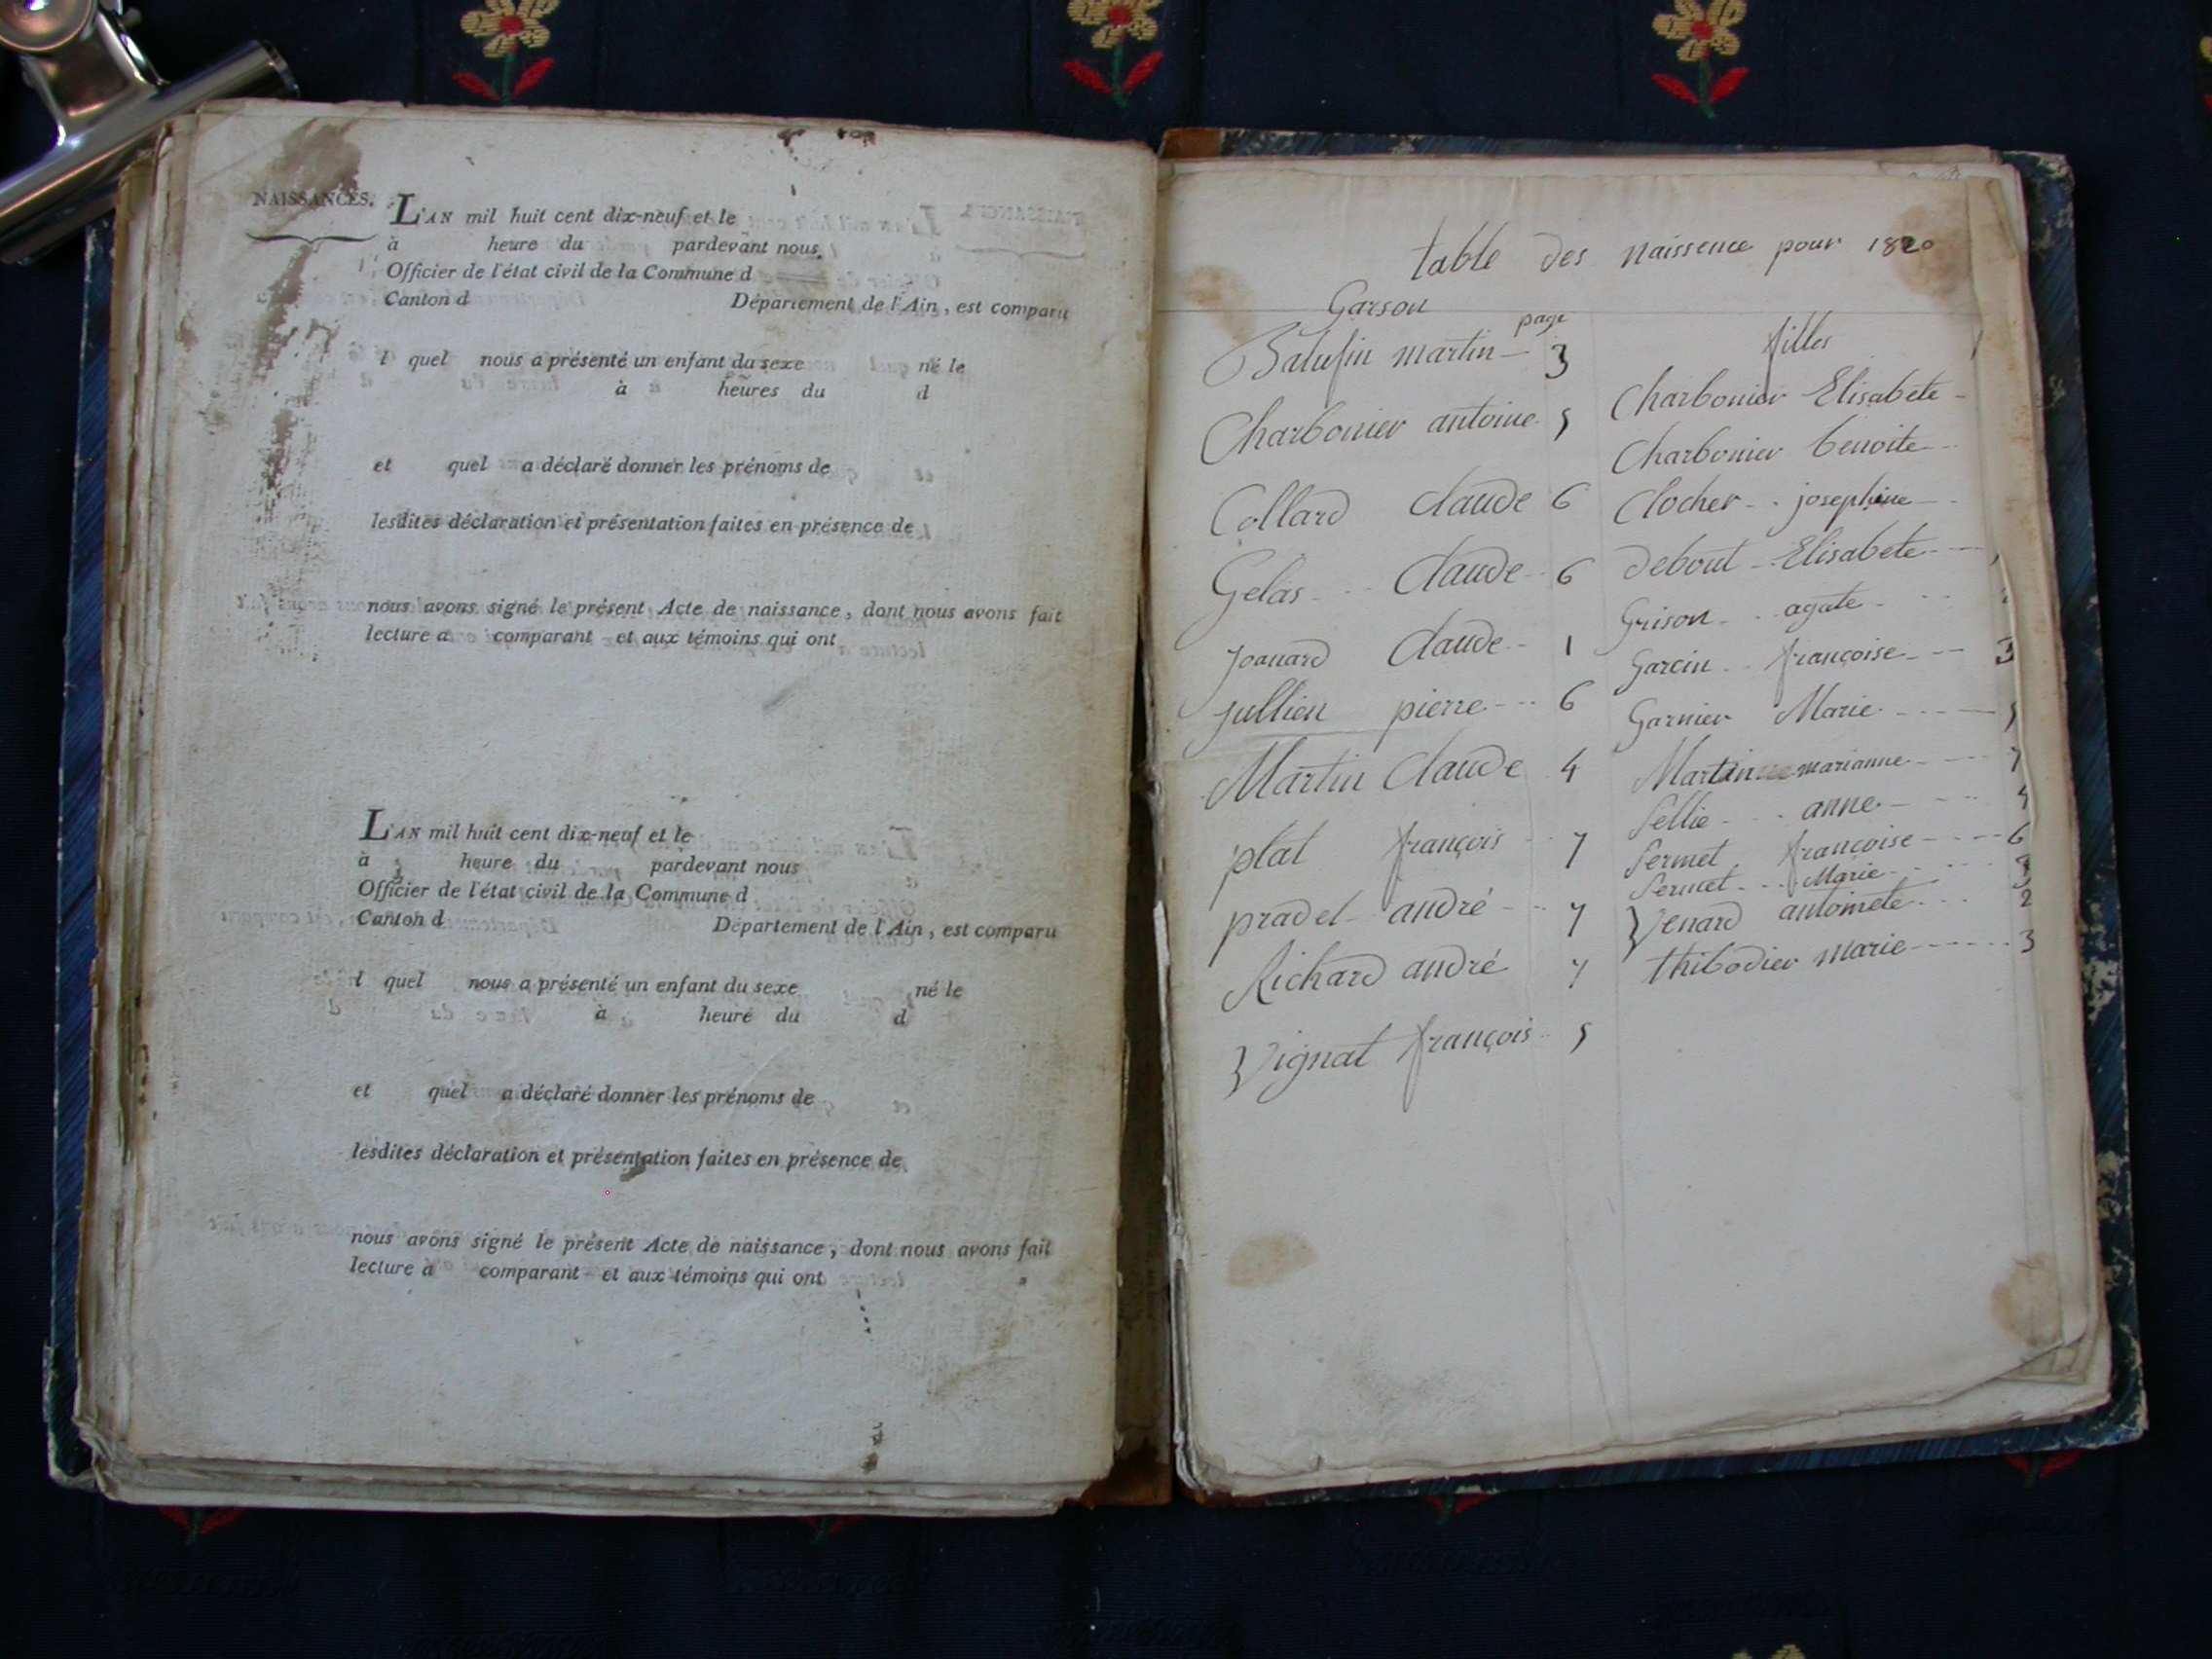 NAISSANCES.
L'AN mil huit cent dix-neuf et le
à heure du pardevant nous,
Officier de l'état civil de la Commune d
Canton d Département de l'Ain, est comparu
l quel nous a présenté un enfant du sexe né le
à heures du d
et quel a déclaré donner les prénoms de
lesdites déclaration et présentation faites en présence de
nous avons signé le présent Acte de naissance, dont nous avons fait
lecture a comparant et aux témoins qui ont
L'AN mil huit cent dix-neuf et le
à heure du pardevant nous
Officier de l'état civil de la Commune d
Canton d Département de l'Ain, est comparu
l quel nous a présenté un enfant du sexe né le
à heure du d
et quel a déclaré donner les prénoms de
lesdites déclaration et présentation faites en présence de
nous avons signé le présent Acte de naissance, dont nous avons fait
lecture à comparant et aux témoins qui ont
table des naissence pour 1820
Garson
page
martin 3
Charbonier antoine 5
Collard Claude 6
Gelas Claude 6
Joanard Claude 1
Jullien pierre 6
Martin Claude 4
plat françois 7
pradel andré 7
Richard andré 7
Vignat françois 5
filles
Charbonier Elisabete
Charbonier benoite
Clocher josephine
debout Elisabete
Grison agate
Garcin françoise 3
Garnier Marie 5
Martin marianne 7
Sellie anne
Sermet francoise 6
Sermet Marie
Venard antoinete 2
thibodier marie 3